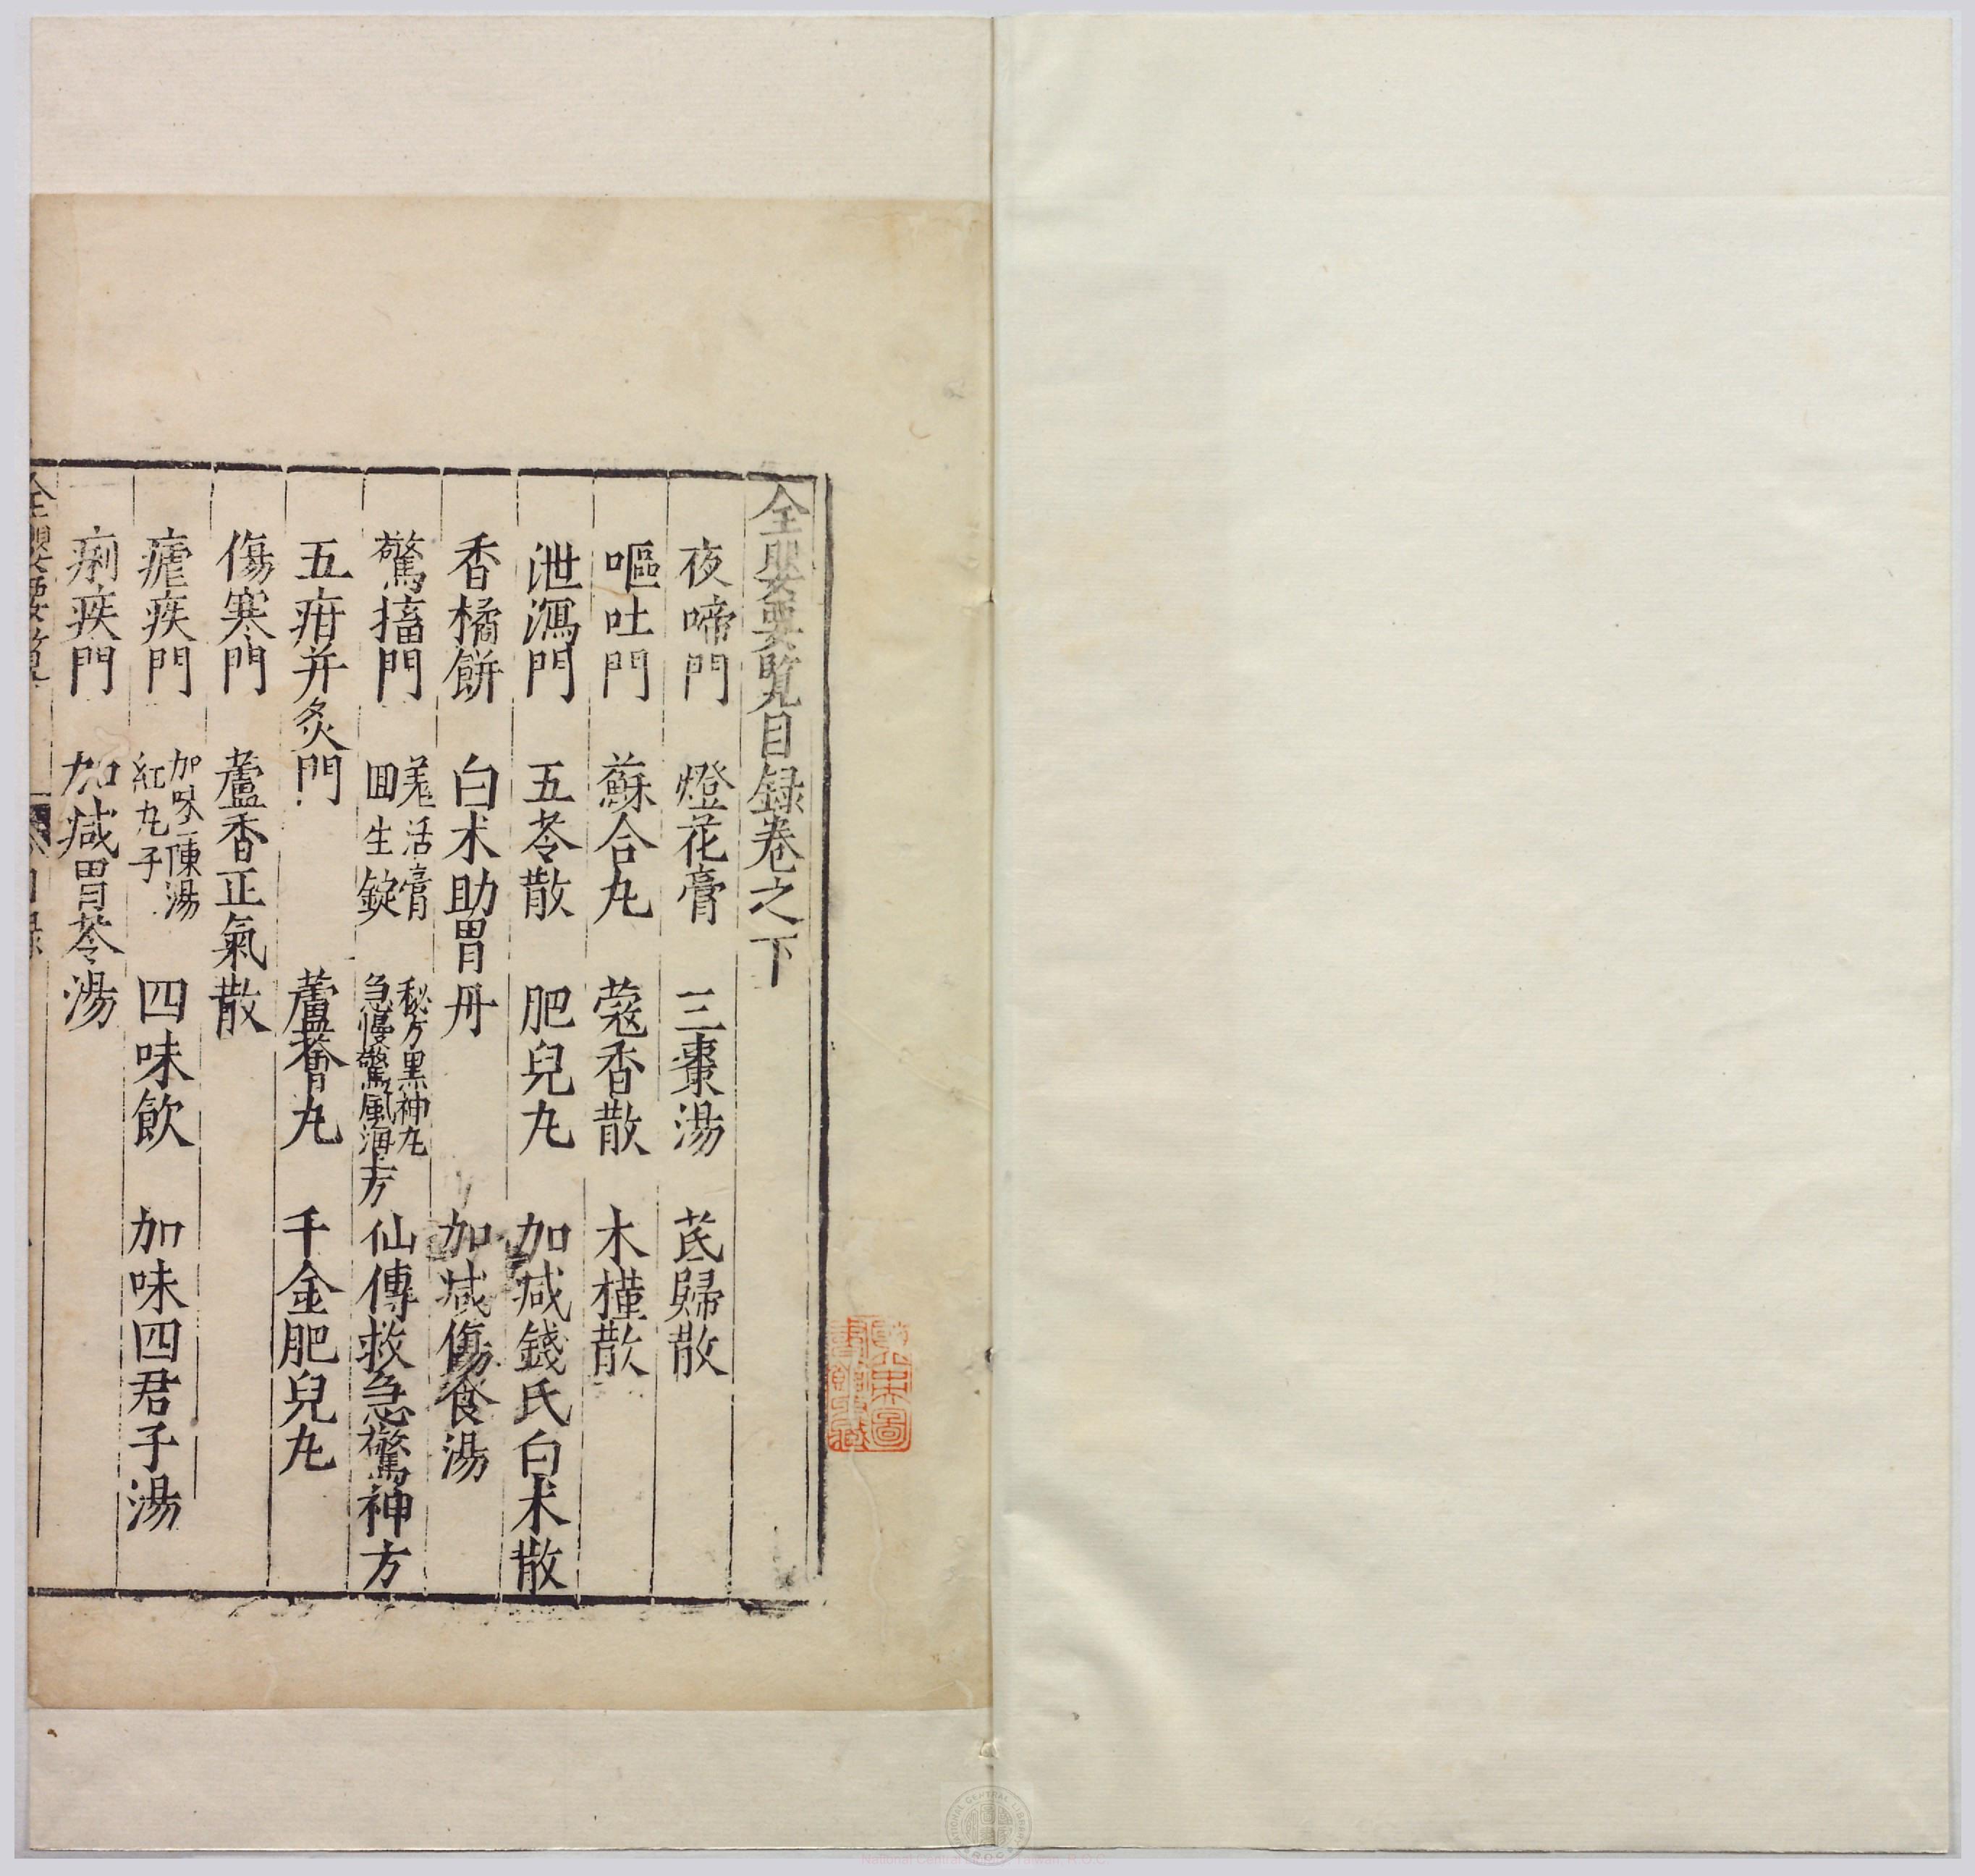 全嬰要覽目録卷之下
夜啼門 燈花膏 三棗湯 芪歸散
嘔吐門 蘇合丸 蔻香散 木槿散
泄瀉門 五苓散 肥兒丸 加减錢氏白术散
香橘餅 白术助胃丹 加减傷食湯
驚搐門 羗活膏 回生錠 秘方黑神丸 急慢驚風海上方 仙傳救急驚神方
五疳并灸門 蘆薈丸 千金肥兒丸
傷寒門 藿香正氣散
瘧疾門 加味二陳湯 紅丸子 四味飲 加味四君子湯
痢疾門 加减胃苓湯
全嬰要覽
目録
National Central Library, Taiwan, R.O.C